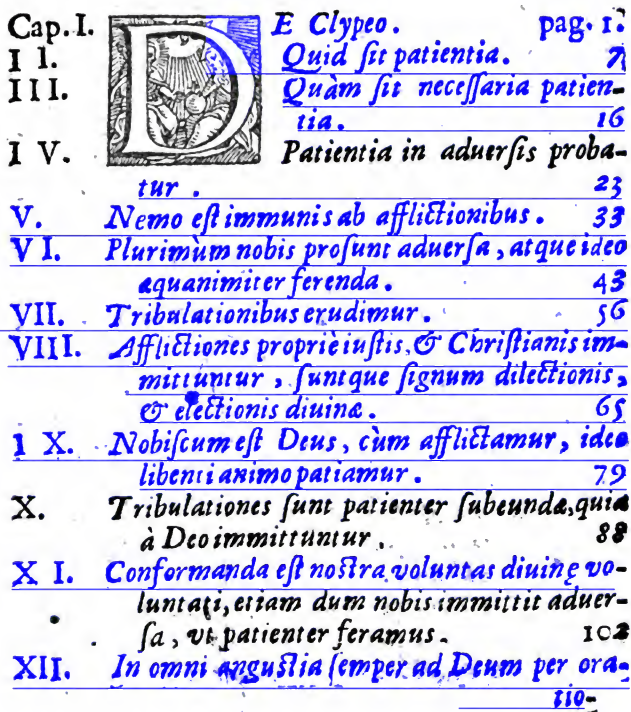 Cap. I. DE Clypeo. pag. 1.
II. Quid ſit patientia. 7
III. Quàm ſit neceſſaria patien-
tia. 16
IV. Patientia in aduerſis proba-
tur. 23
V. Nemo eſt immunis ab afflictionibus. 33
VI. Plurimùm nobis proſunt aduerſa, atque ideo
æquanimiter ferenda. 43
VII. Tribulationibus erudimur. 56
VIII. Afflictiones propriè iuſtis, & Chriſtianis im-
mittuntur, ſuntque ſignum dilectionis,
& electionis diuinæ. 65
IX. Nobiſcum eſt Deus, cùm afflictamur, ideo
libenti animo patiamur. 79
X. Tribulationes ſunt patienter ſubeundæ, quia
à Deo immittuntur. 88
XI. Conformanda eſt noſtra voluntas diuinę vo-
luntati, etiam dum nobis immittit aduer-
ſa, vt patienter feramus. 102
XII. In omni anguſtia ſemper ad Deum per ora-
tio-